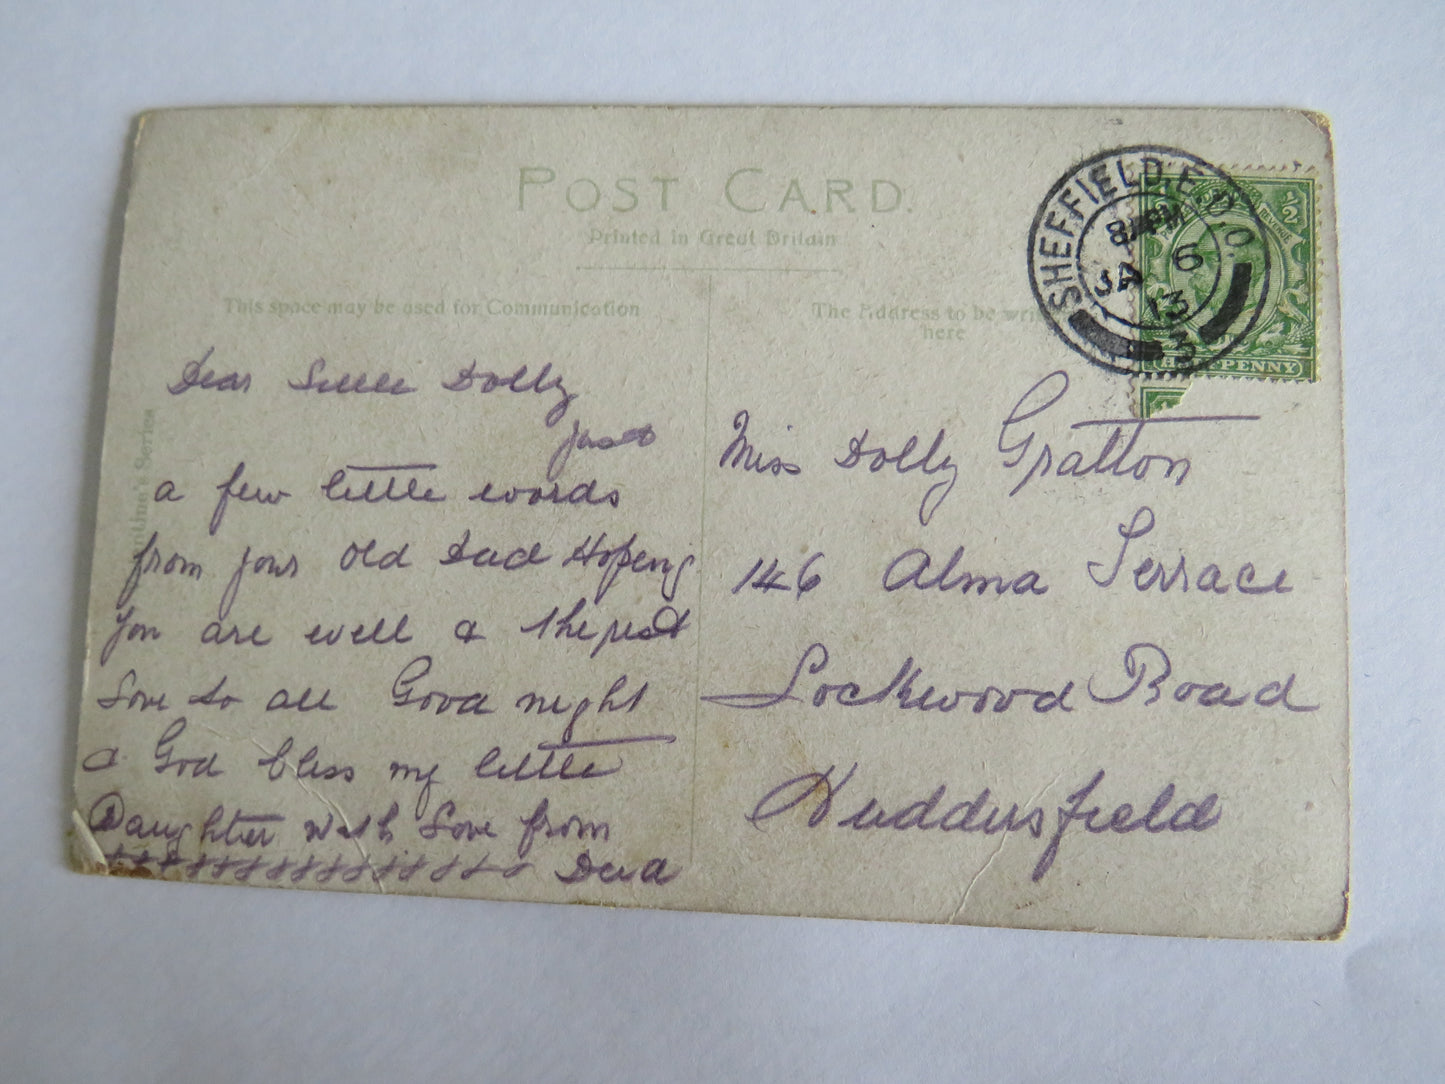 POST CARD.
Printed in Great Britain
This space may be used for Communication
The Address to be
here
SHEFFIELD.
JA 6
13
3
1/2
REVENUE
PENNY
Series
Dear little Dolly
just
a few little words
from your old Dad Hoping
you are well & the rest
Love to all Good night
& God bless my little
Daughter with Love from
Dad
Miss Dolly Gratton
146 Alma Terrace
Lockwood Road
Huddersfield